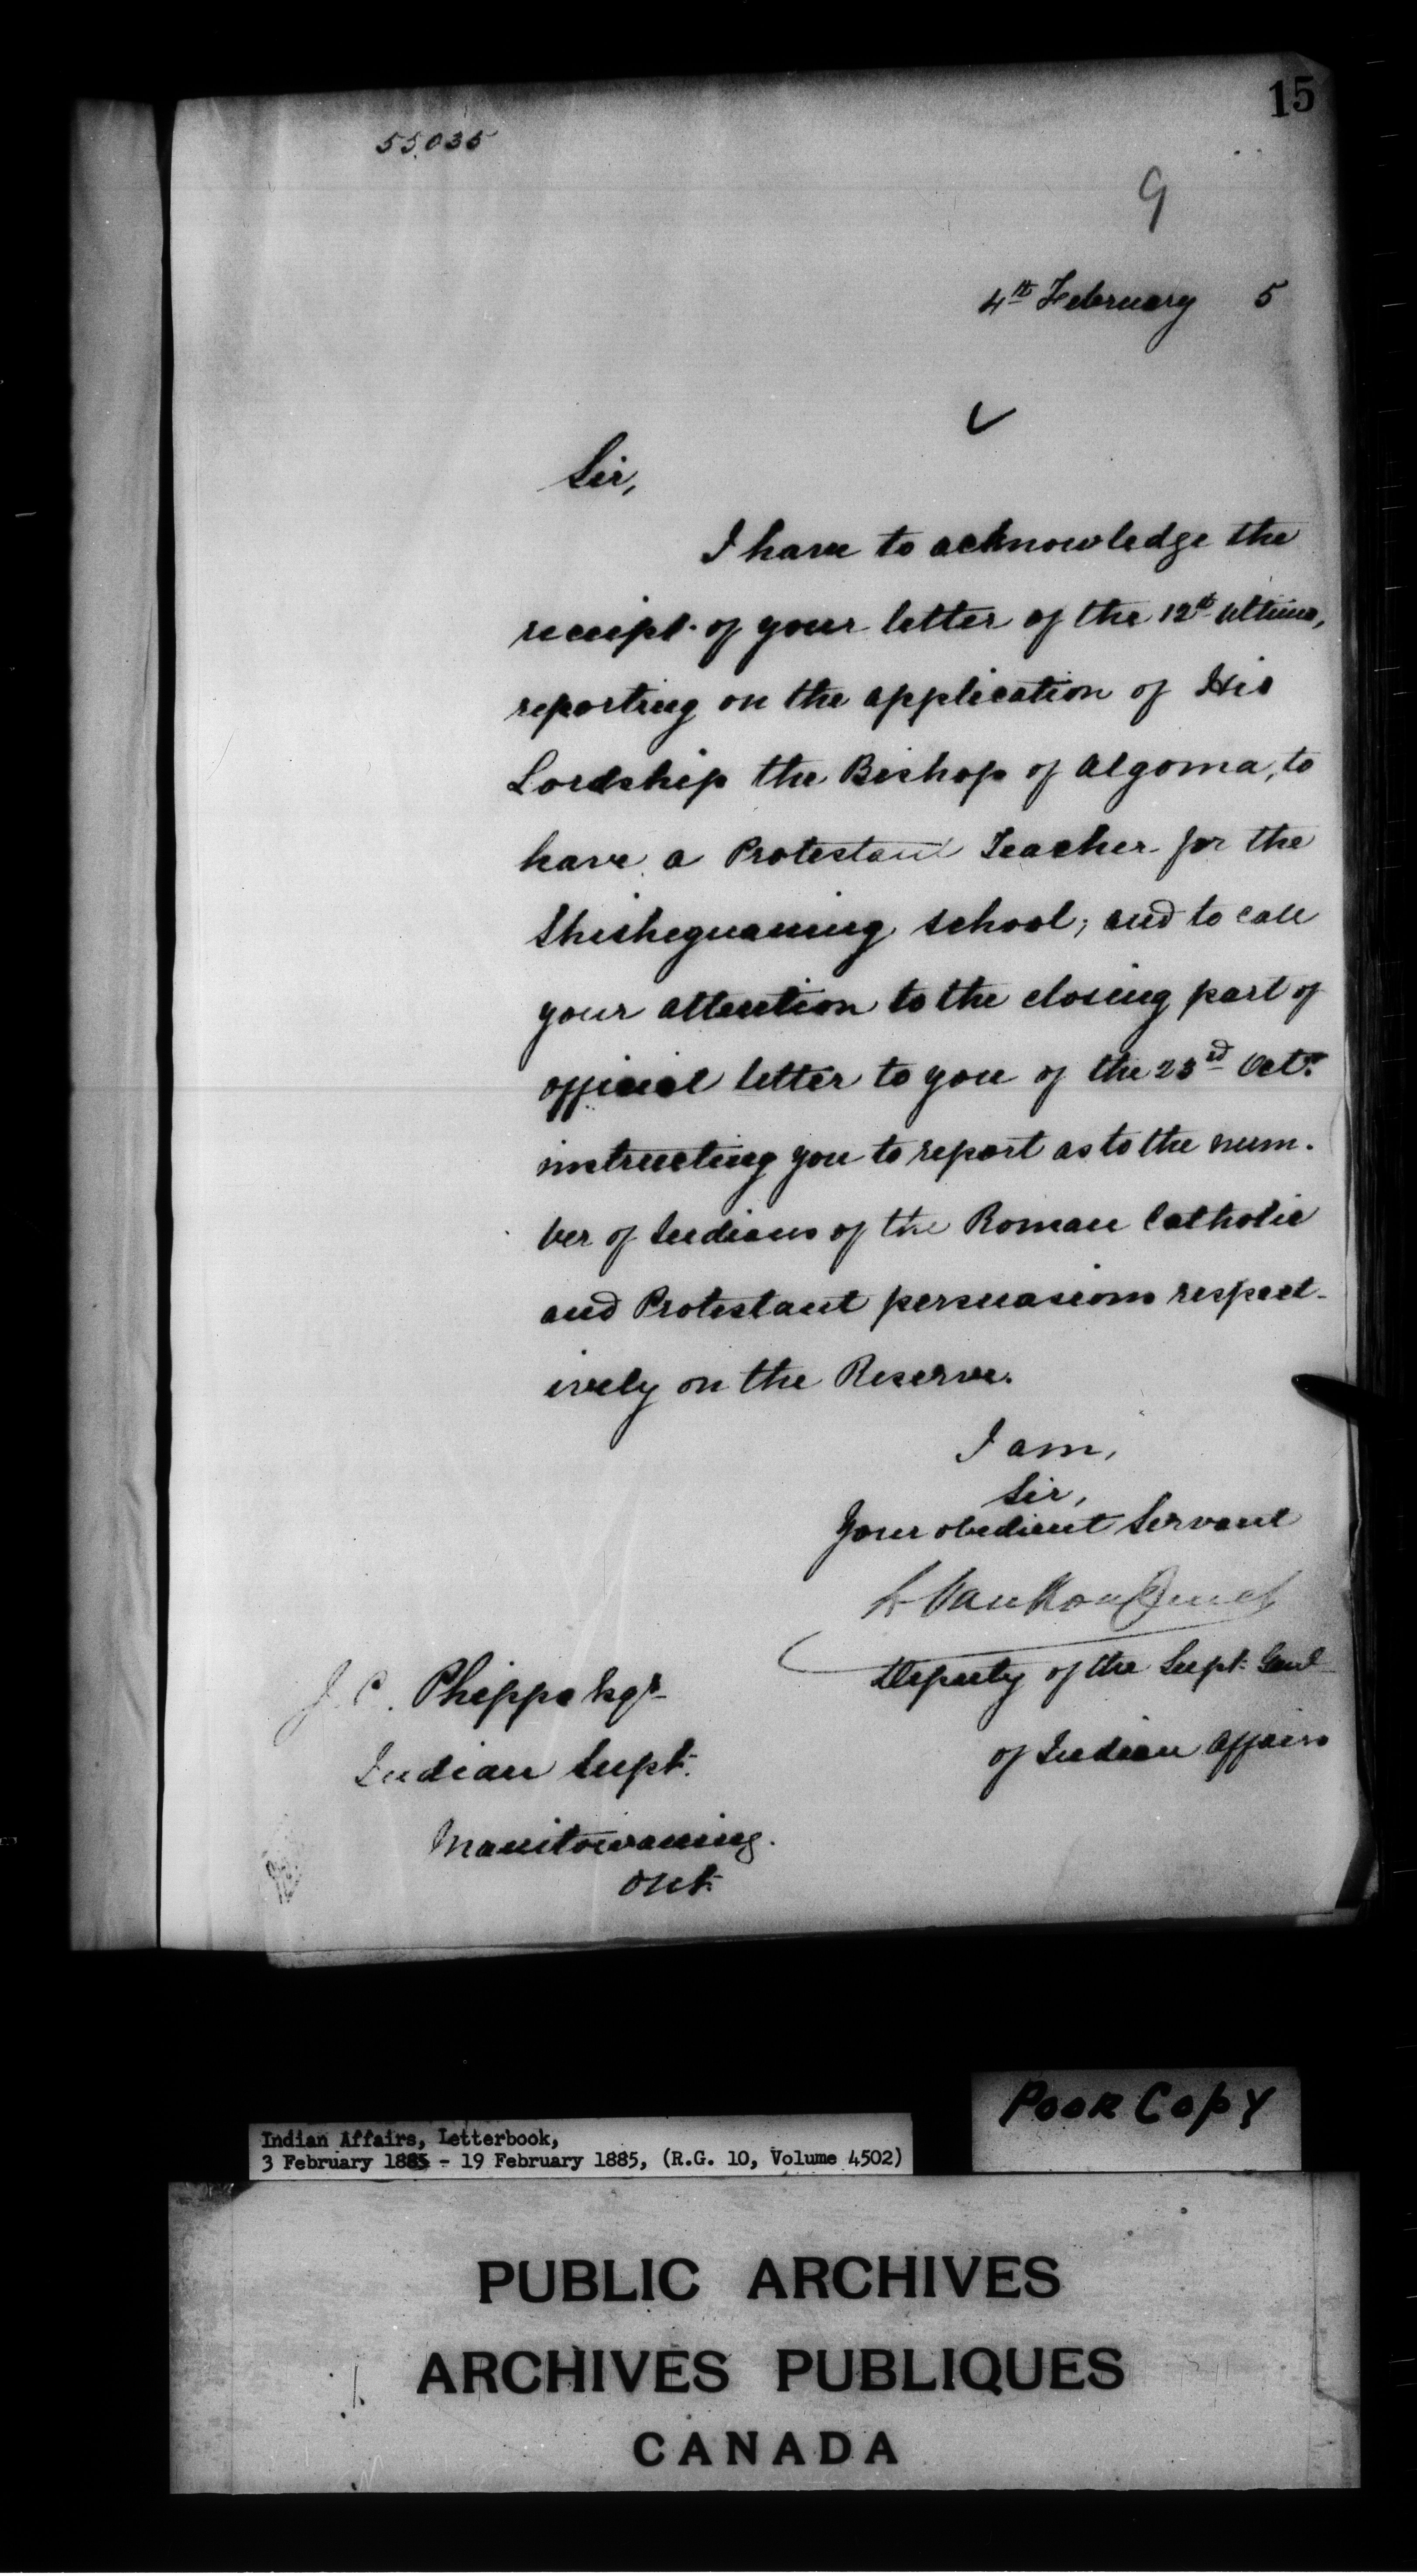 15
55.035
9
4th February 5
Sir,
I have to acknowledge the
receipt of your letter of the 12th ultimo,
reporting on the application of His
Lordship the Bishop of Algoma, to
have a Protestant Teacher for the
Shisheguaning school; and to call
your attention to the closing part of
official letter to you of the 23rd Octr
instructing you to report as to the num-
ber of Indians of the Roman Catholic
and Protestant persuasions respect-
ively on the Reserve.
I am,
Sir,
Your obedient Servant
L VanKoughnet
Deputy of the Supt. Genl
of Indian Affairs
J. C. Phipps Esqr
Indian Supt.
Manitowaning.
Ont.
Poor Copy
Indian Affairs, Letterbook,
3 February 1885 - 19 February 1885, (R.G. 10, Volume 4502)
PUBLIC ARCHIVES
ARCHIVES PUBLIQUES
CANADA